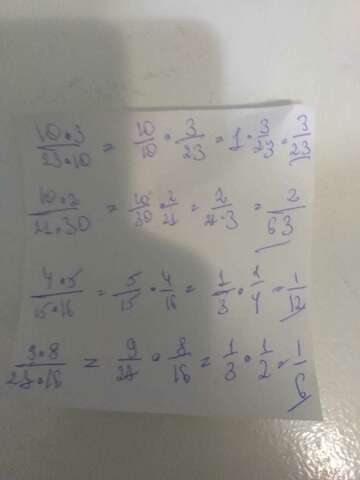 10•3/23•10 = 10/10 • 3/23 = 1 • 3/23 = 3/23
10•2/21•30 = 10/30 • 2/21 = 2/21•3 = 2/63
4•5/15•16 = 5/15 • 4/16 = 1/3 • 1/4 = 1/12
9•8/27•16 = 9/27 • 8/16 = 1/3 • 1/2 = 1/6